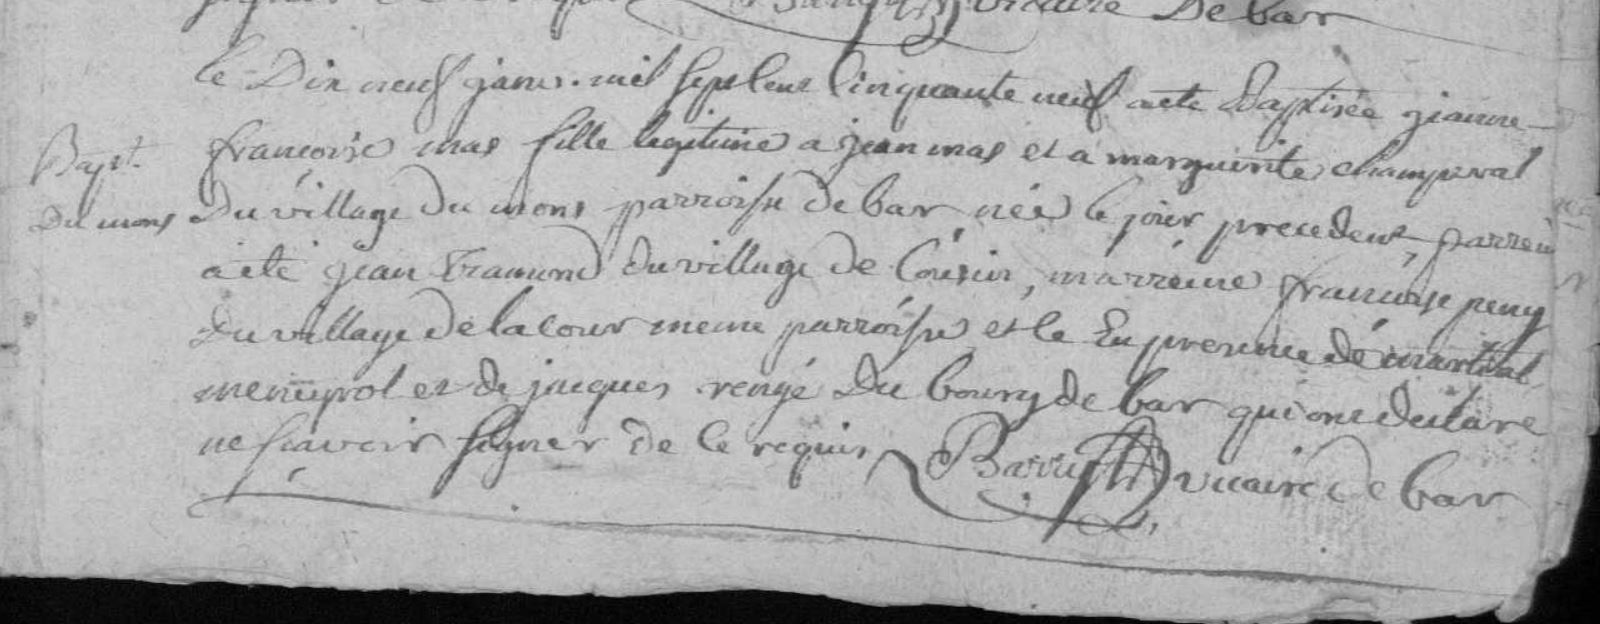 vicaire De bar
le Dix neuf janv. mil sept cent cinquante neuf a eté Baptisée jeanne
Bapt. françoise mas fille legitime a jean mas et a marguerite champeval
Du mons Du village du mons parroisse de bar née le jour precedent, parrein
a eté jean Tramond du village de Cousin, marreine françoise peuy
Du village de la cour meme parroisse et le En presence de martial
meneyrol et de jacques rengé Du bourg de bar qui ont declare
ne scavoir signer de ce requis vicaire de bar